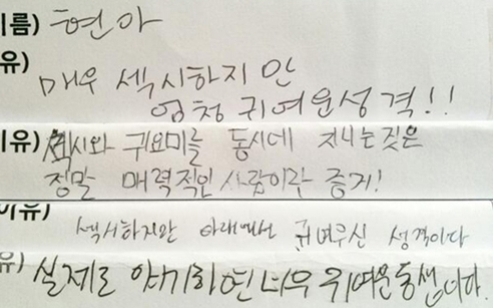 이름) 현아
유) 매우 섹시하지 안
엄청 귀여운성격!!
이유) 섹시와 귀요미를 동시에 지니는 짓은
정말 매력적인 사람이란 증거!
이유)
섹서하지만 아래에서 귀여우신 성격이다
유) 실제로 얘기하면 너무 귀여운동생